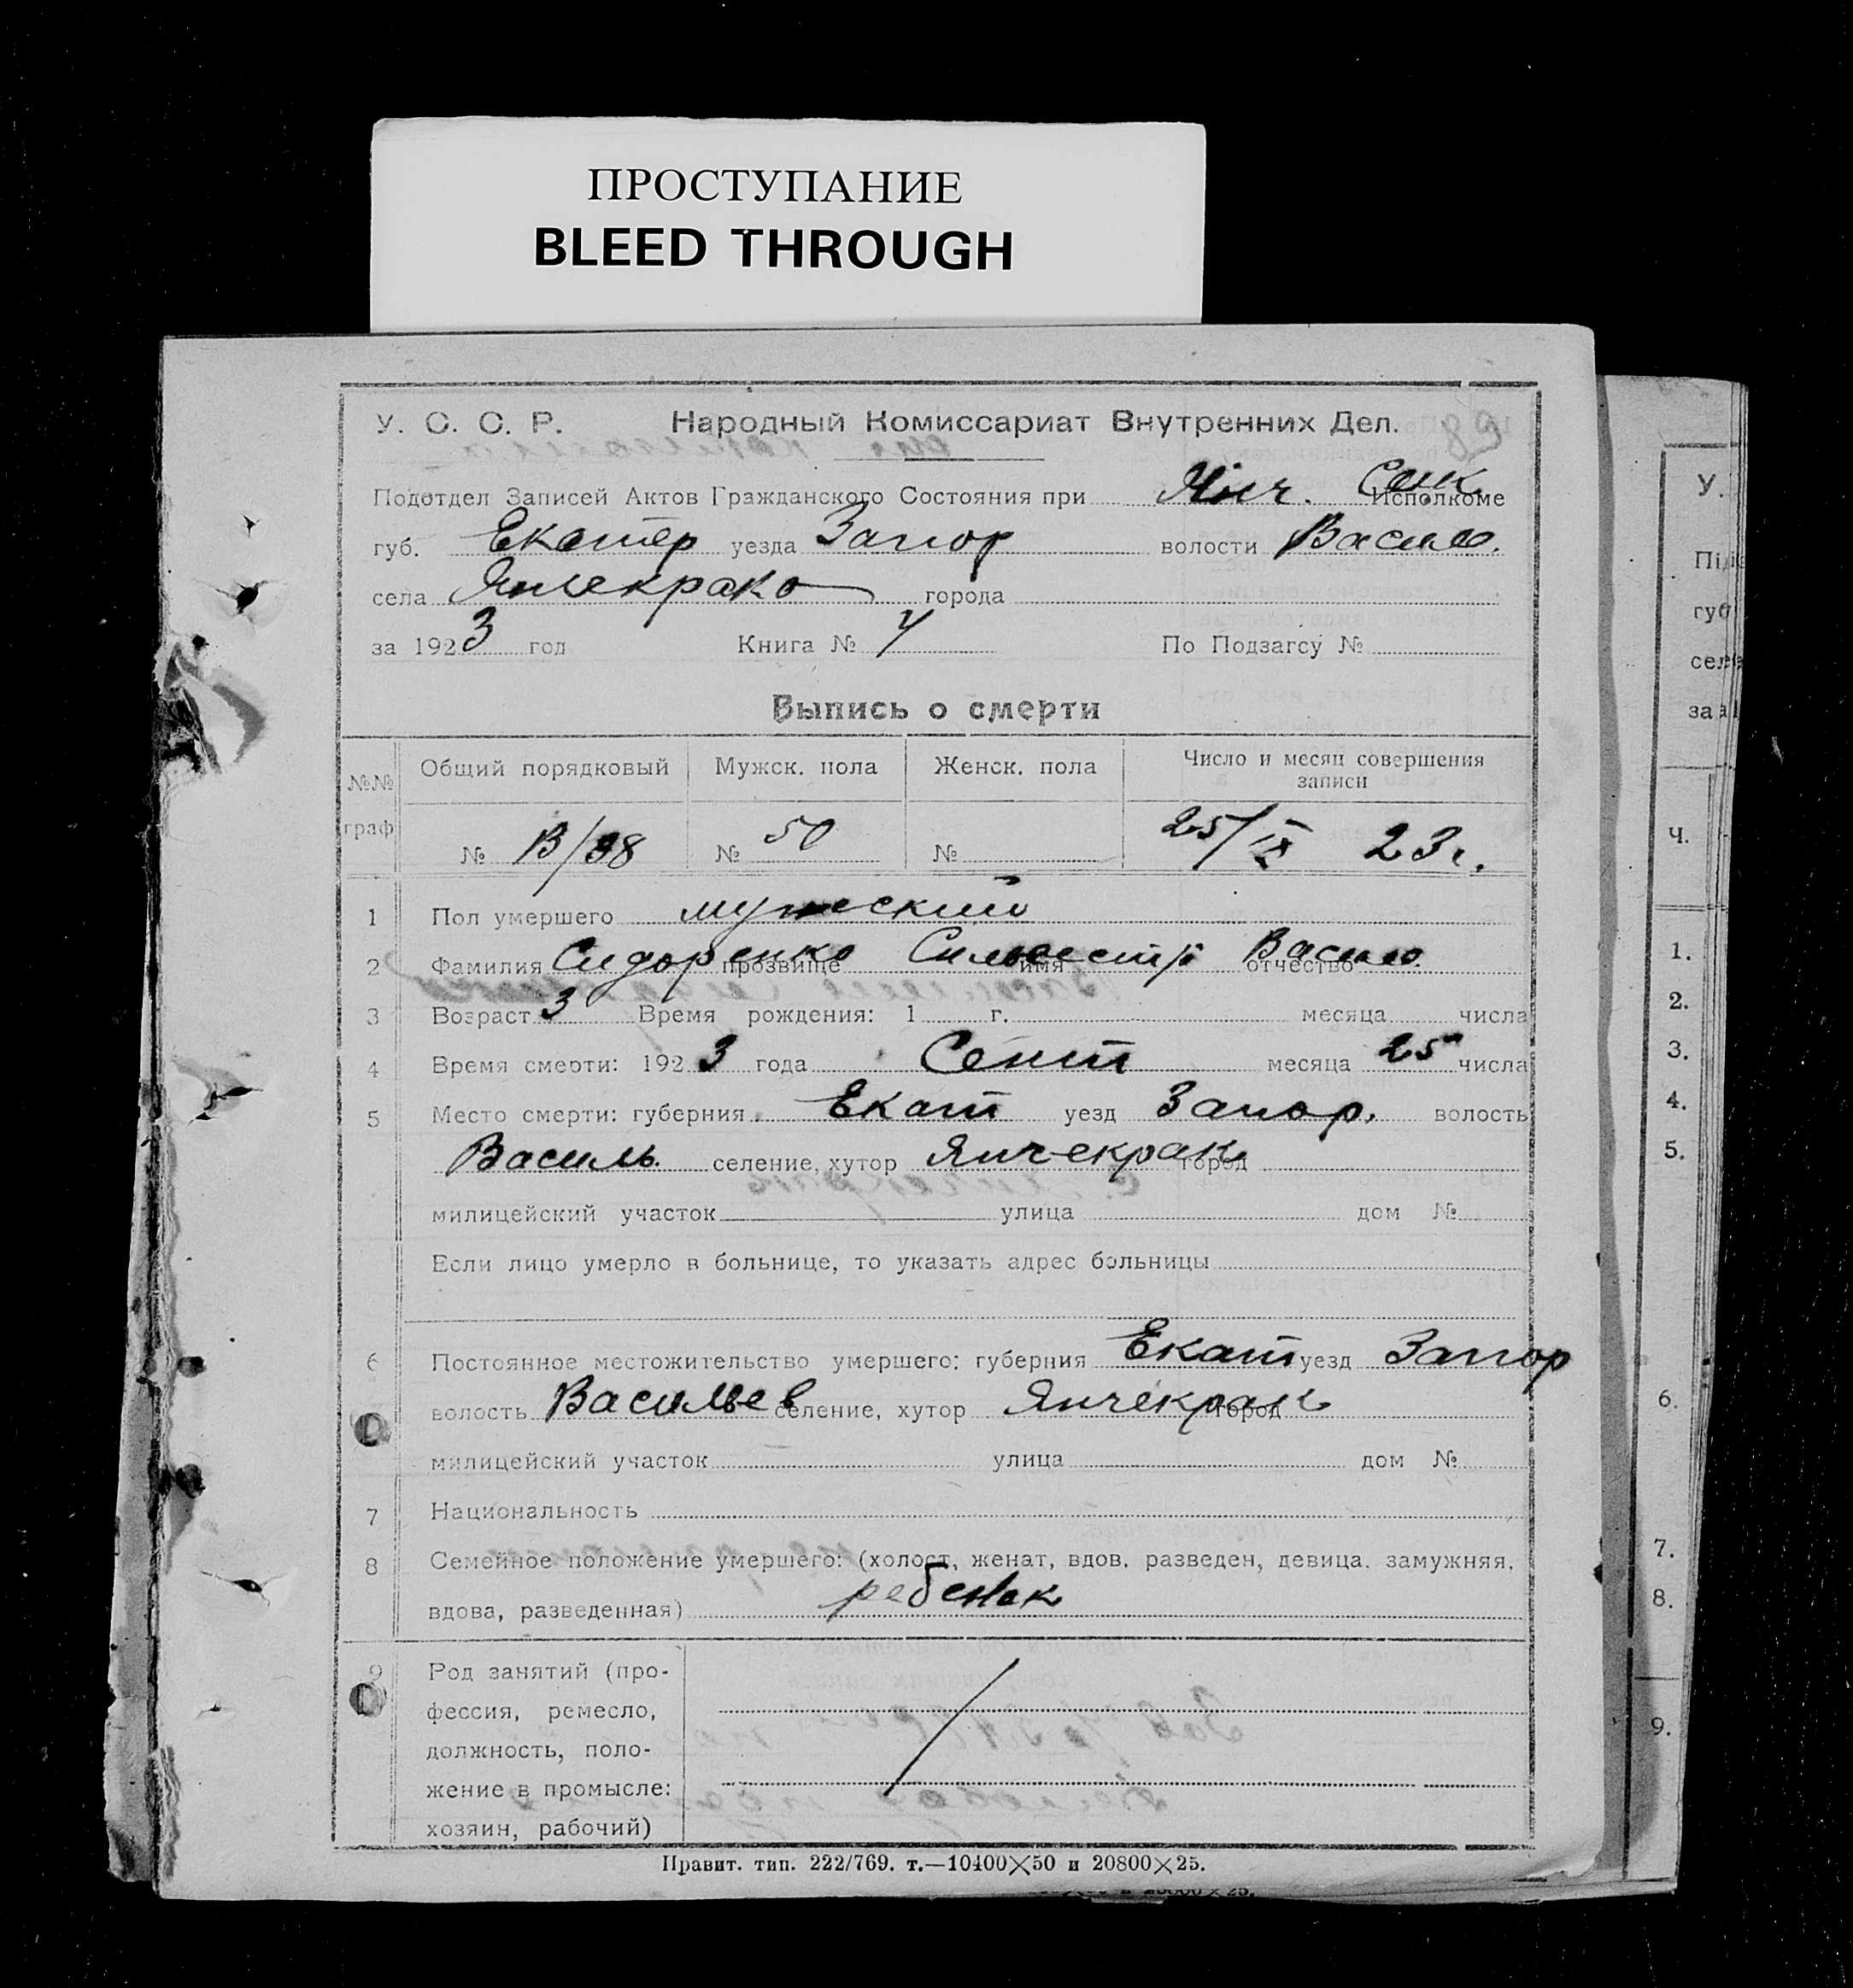 ПРОСТУПАНИЕ
BLEED THROUGH
У. С. С. Р. Народный Комиссариат Внутренних Дел.
Подотдел Записей Актов Гражданского Состояния при Янч. Исполкоме
губ. Екатер уезда Запор волости Васил.
села города
за 1923 год Книга № По Подзагсу №
Выпись о смерти
№№ граф Общий порядковый Мужск. пола Женск. пола Число и месяц совершения
записи
№ № 50 № 25/IX 23 г.
1 Пол умершего мужеский
2 Фамилия Сидоренко прозвище Сильвестр имя Васил. отчество
3 Возраст 3 Время рождения: 1 г. месяца числа
4 Время смерти: 1923 года Сент месяца 25 числа
5 Место смерти: губерния Екат уезд Запор. волость
Василь. селение, хутор Янчекрак город
милицейский участок улица дом №
Если лицо умерло в больнице, то указать адрес больницы
6 Постоянное местожительство умершего: губерния Екат уезд Запор
волость Васильев селение, хутор Янчекрак город
милицейский участок улица дом №
7 Национальность
8 Семейное положение умершего: (холост, женат, вдов, разведен, девица, замужняя,
вдова, разведенная) ребенок
9 Род занятий (про-
фессия, ремесло,
должность, поло-
жение в промысле:
хозяин, рабочий)
Правит. тип. 222/769. т.—10400×50 и 20800×25.
У.
губ
за
Ч.
1.
2.
3.
4.
5.
6.
7.
8.
9.